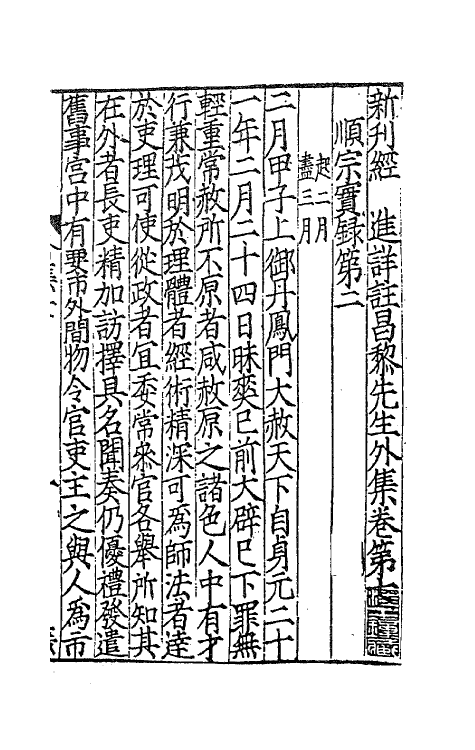 新刊經　進詳註昌黎先生外集卷第七
順宗實錄第二
起二月
盡三月
二月甲子上御丹鳳門大赦天下自身元二十
一年二月二十四日昧爽已前大辟已下罪無
輕重常赦所不原者咸赦原之諸色人中有才
行兼茂明於理體者經術精深可為師法者達
於吏理可使從政者宜委常叅官各舉所知其
在外者長吏精加訪擇具名聞奏仍優禮發遣
舊事宮中有要市外間物令官吏主之與人為市